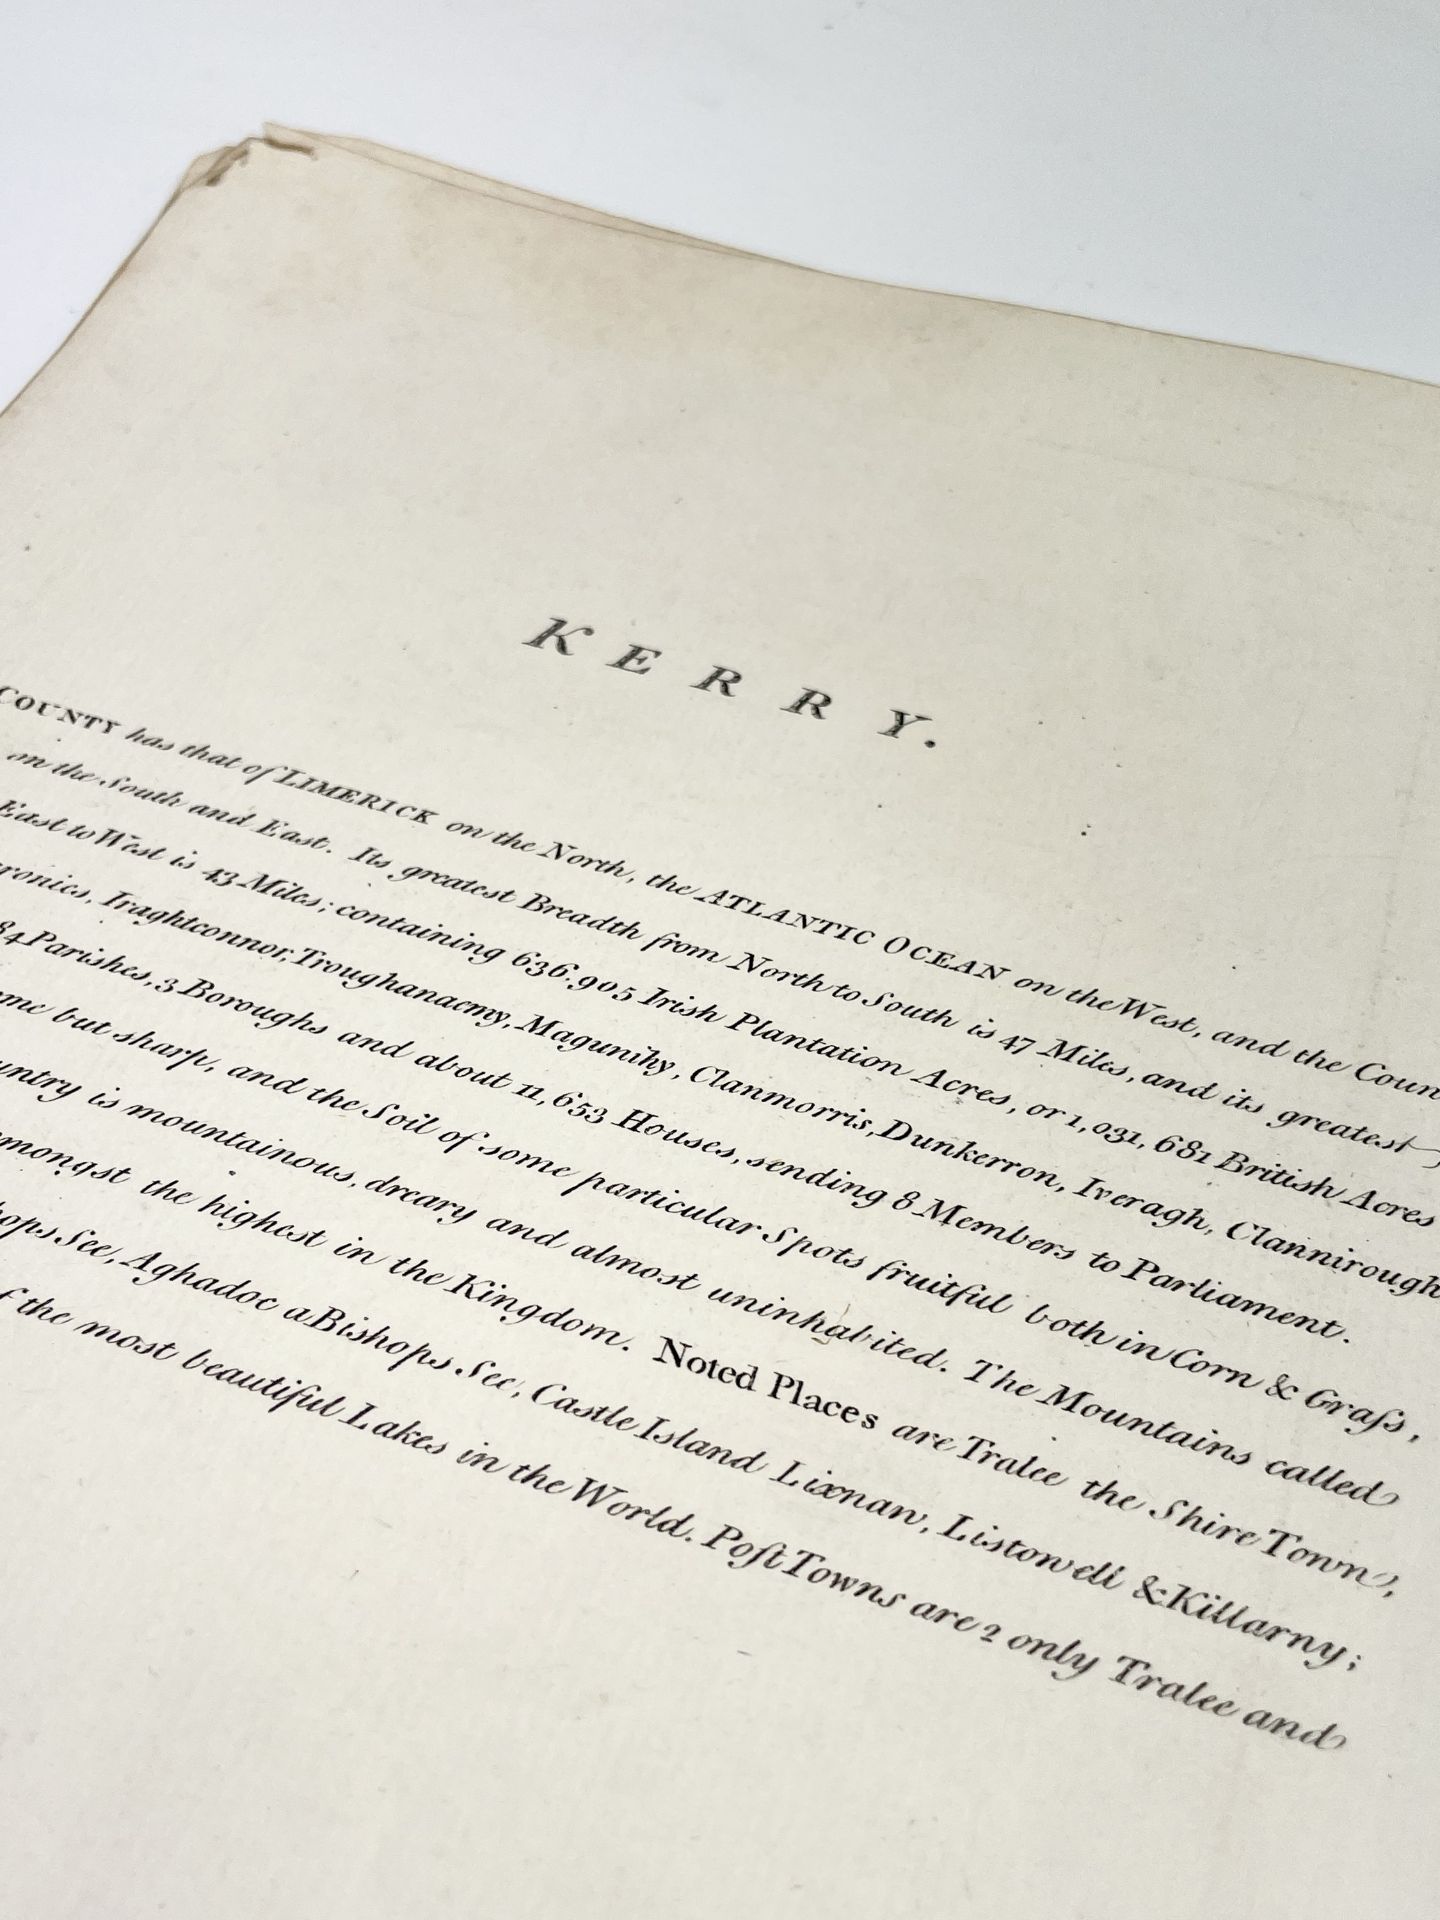 KERRY.
COUNTY has that of LIMERICK on the North, the ATLANTIC OCEAN on the West, and the Coun
on the South and East. Its greatest Breadth from North to South is 47 Miles, and its greatest
East to West is 43 Miles; containing 636.905 Irish Plantation Acres, or 1,031,681 British Acres
ronies, Iraghtconnor, Troughanacmy, Magunihy, Clanmorris, Dunkerron, Iveragh, Clannirough
84 Parishes, 3 Boroughs and about 11,653 Houses, sending 8 Members to Parliament.
me but sharp, and the Soil of some particular Spots fruitful both in Corn & Graſs,
untry is mountainous, dreary and almost uninhabited. The Mountains called
mongst the highest in the Kingdom. Noted Places are Tralee the Shire Town,
hops See, Aghadoe a Bishops See, Castle Island Lixnaw, Listowell & Killarny;
f the most beautiful Lakes in the World. Poſt Towns are 2 only Tralee and